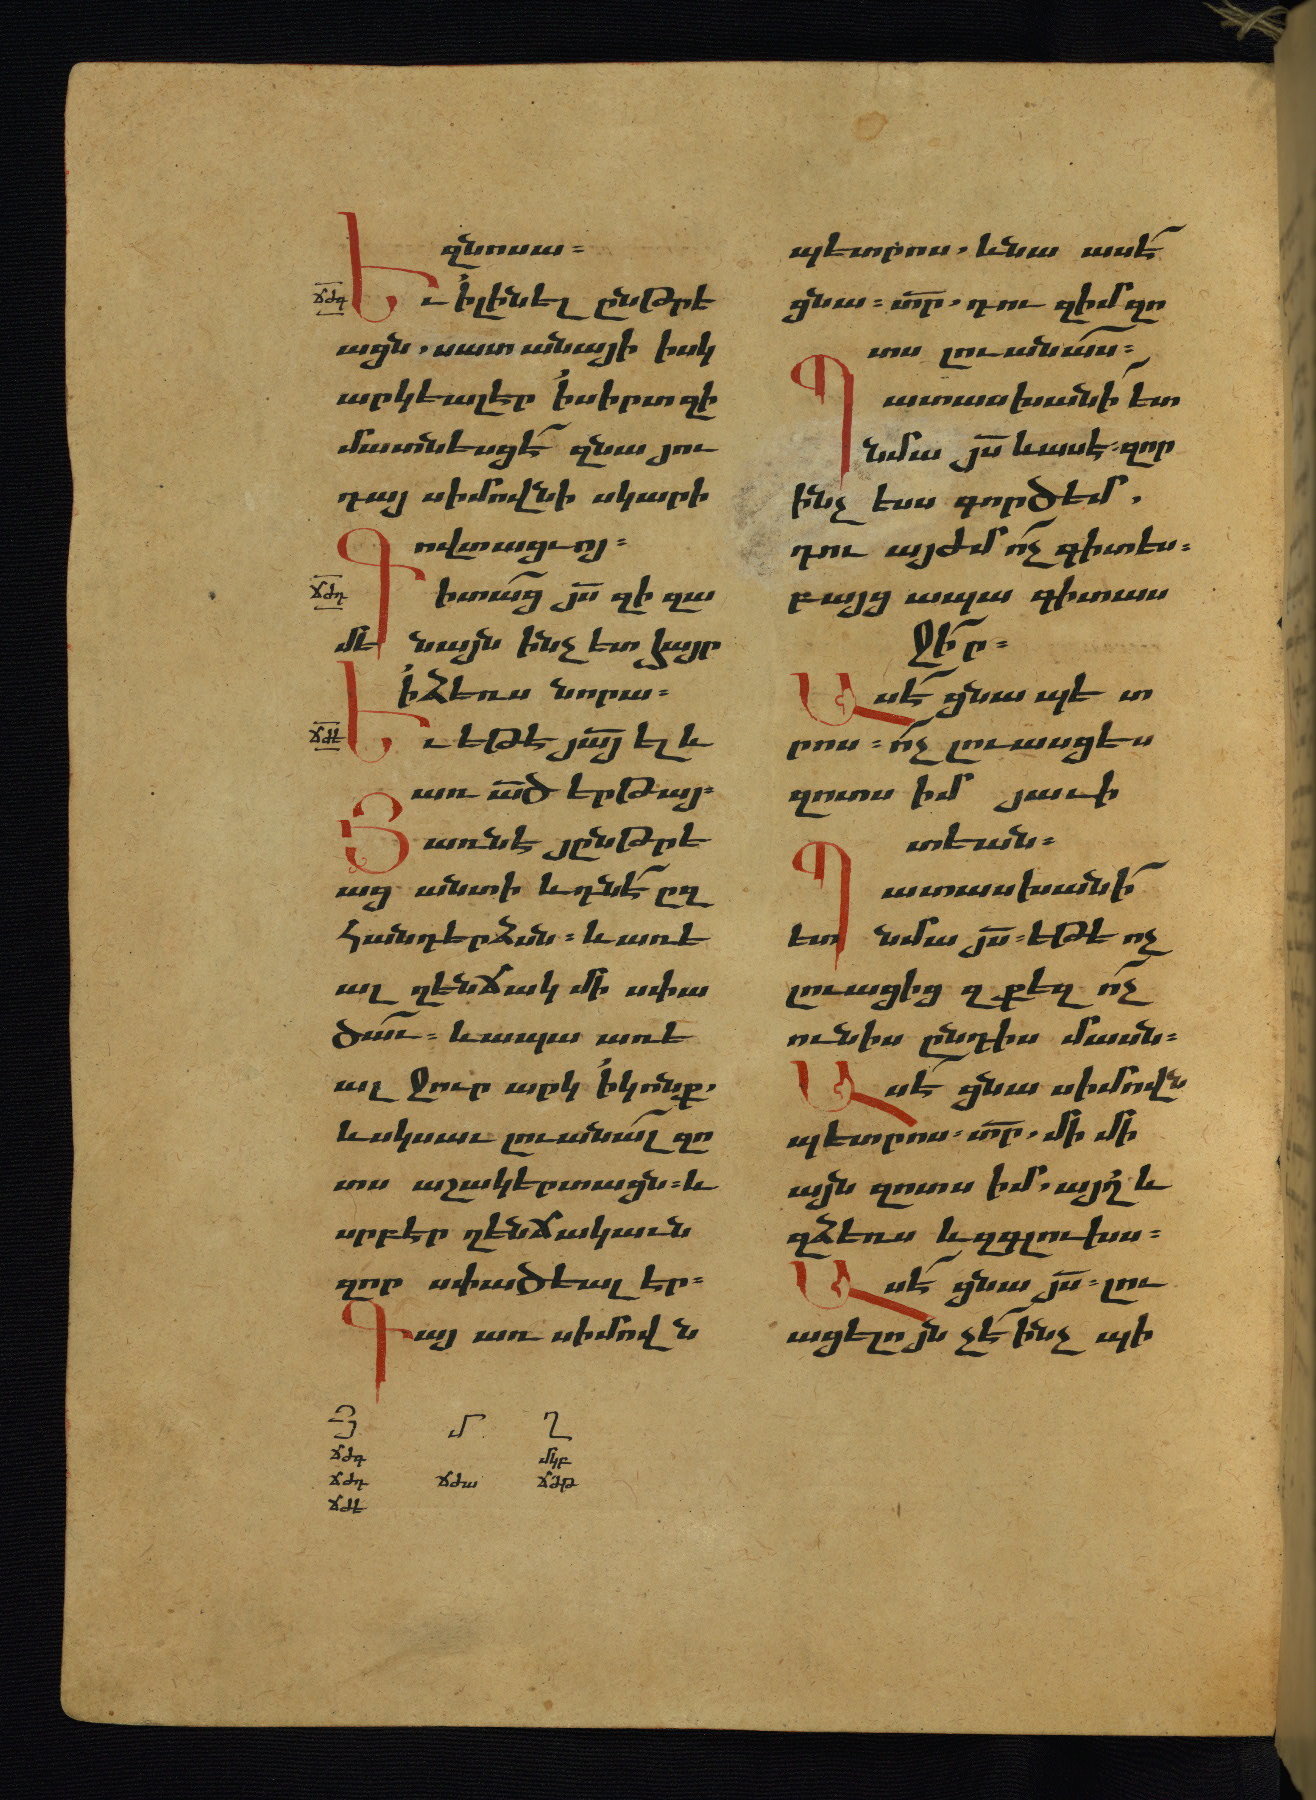 զնոսա։
ճժգ Եւ ՚ի լինել ընթրե
ացն, սատանայի իսկ
արկեալ էր ՚ի սիրտ զի
մատնեսցէ՛ զնա յու
դայ սիմովնի սկարի
ովտացւոյ։
ճժդ Գիտա՛ց յ̅ս̅ զի զա
մե նայն ինչ ետ հայր
՚ի ձեռս նորա։
ճժե Եւ եթե յա̅յ̅ ել և
առ ա̅ծ̅ երթայ։
Յառնե յընթրե
աց անտի և դնէ՛ ըզ
հանդերձան։ և առե
ալ ղենճակ մի սփա
ծա՛ւ։ և ապա առե
ալ ջուր արկ ՚ի կոնք,
և սկսաւ լուանա՛լ զո
տս աշակերտացն։ և
սրբեր ղենճակաւն
զոր սփածեալ եր։
Գայ առ սիմովն
պետրոս, և նա ասէ՛
ցնա։ տ̅ր̅, դու զիմ զո
տս լուանա՛ս։
Պատասխանի՛ ետ
նմա յ̅ս̅ և ասե, զոր
ինչ ես գործեմ,
դու այժմ ո՛չ գիտես։
բայց ապա գիտաս
ջի՛ր։
Ասէ՛ ցնա պե տ
րոս։ ո՛չ լուասցես
զոտս իմ յաւի
տեան։
Պատասխանի՛
ետ նմա յ̅ս̅։ եթե ոչ
լուացից զքեզ ո՛չ
ունիս ընդիս մասն։
Ասէ՛ ցնա սիմովն
պետրոս, տ̅ր̅, մի մի
այն զոտս իմ, այղ և
զձեռս և զգլուխս։
Ասէ՛ ցնա յ̅ս̅։ լու
ացելոյն չէ՛ ինչ պի
Յ Մ Ղ
ճժգ մկբ
ճժդ ճժա ճժթ
ճժե